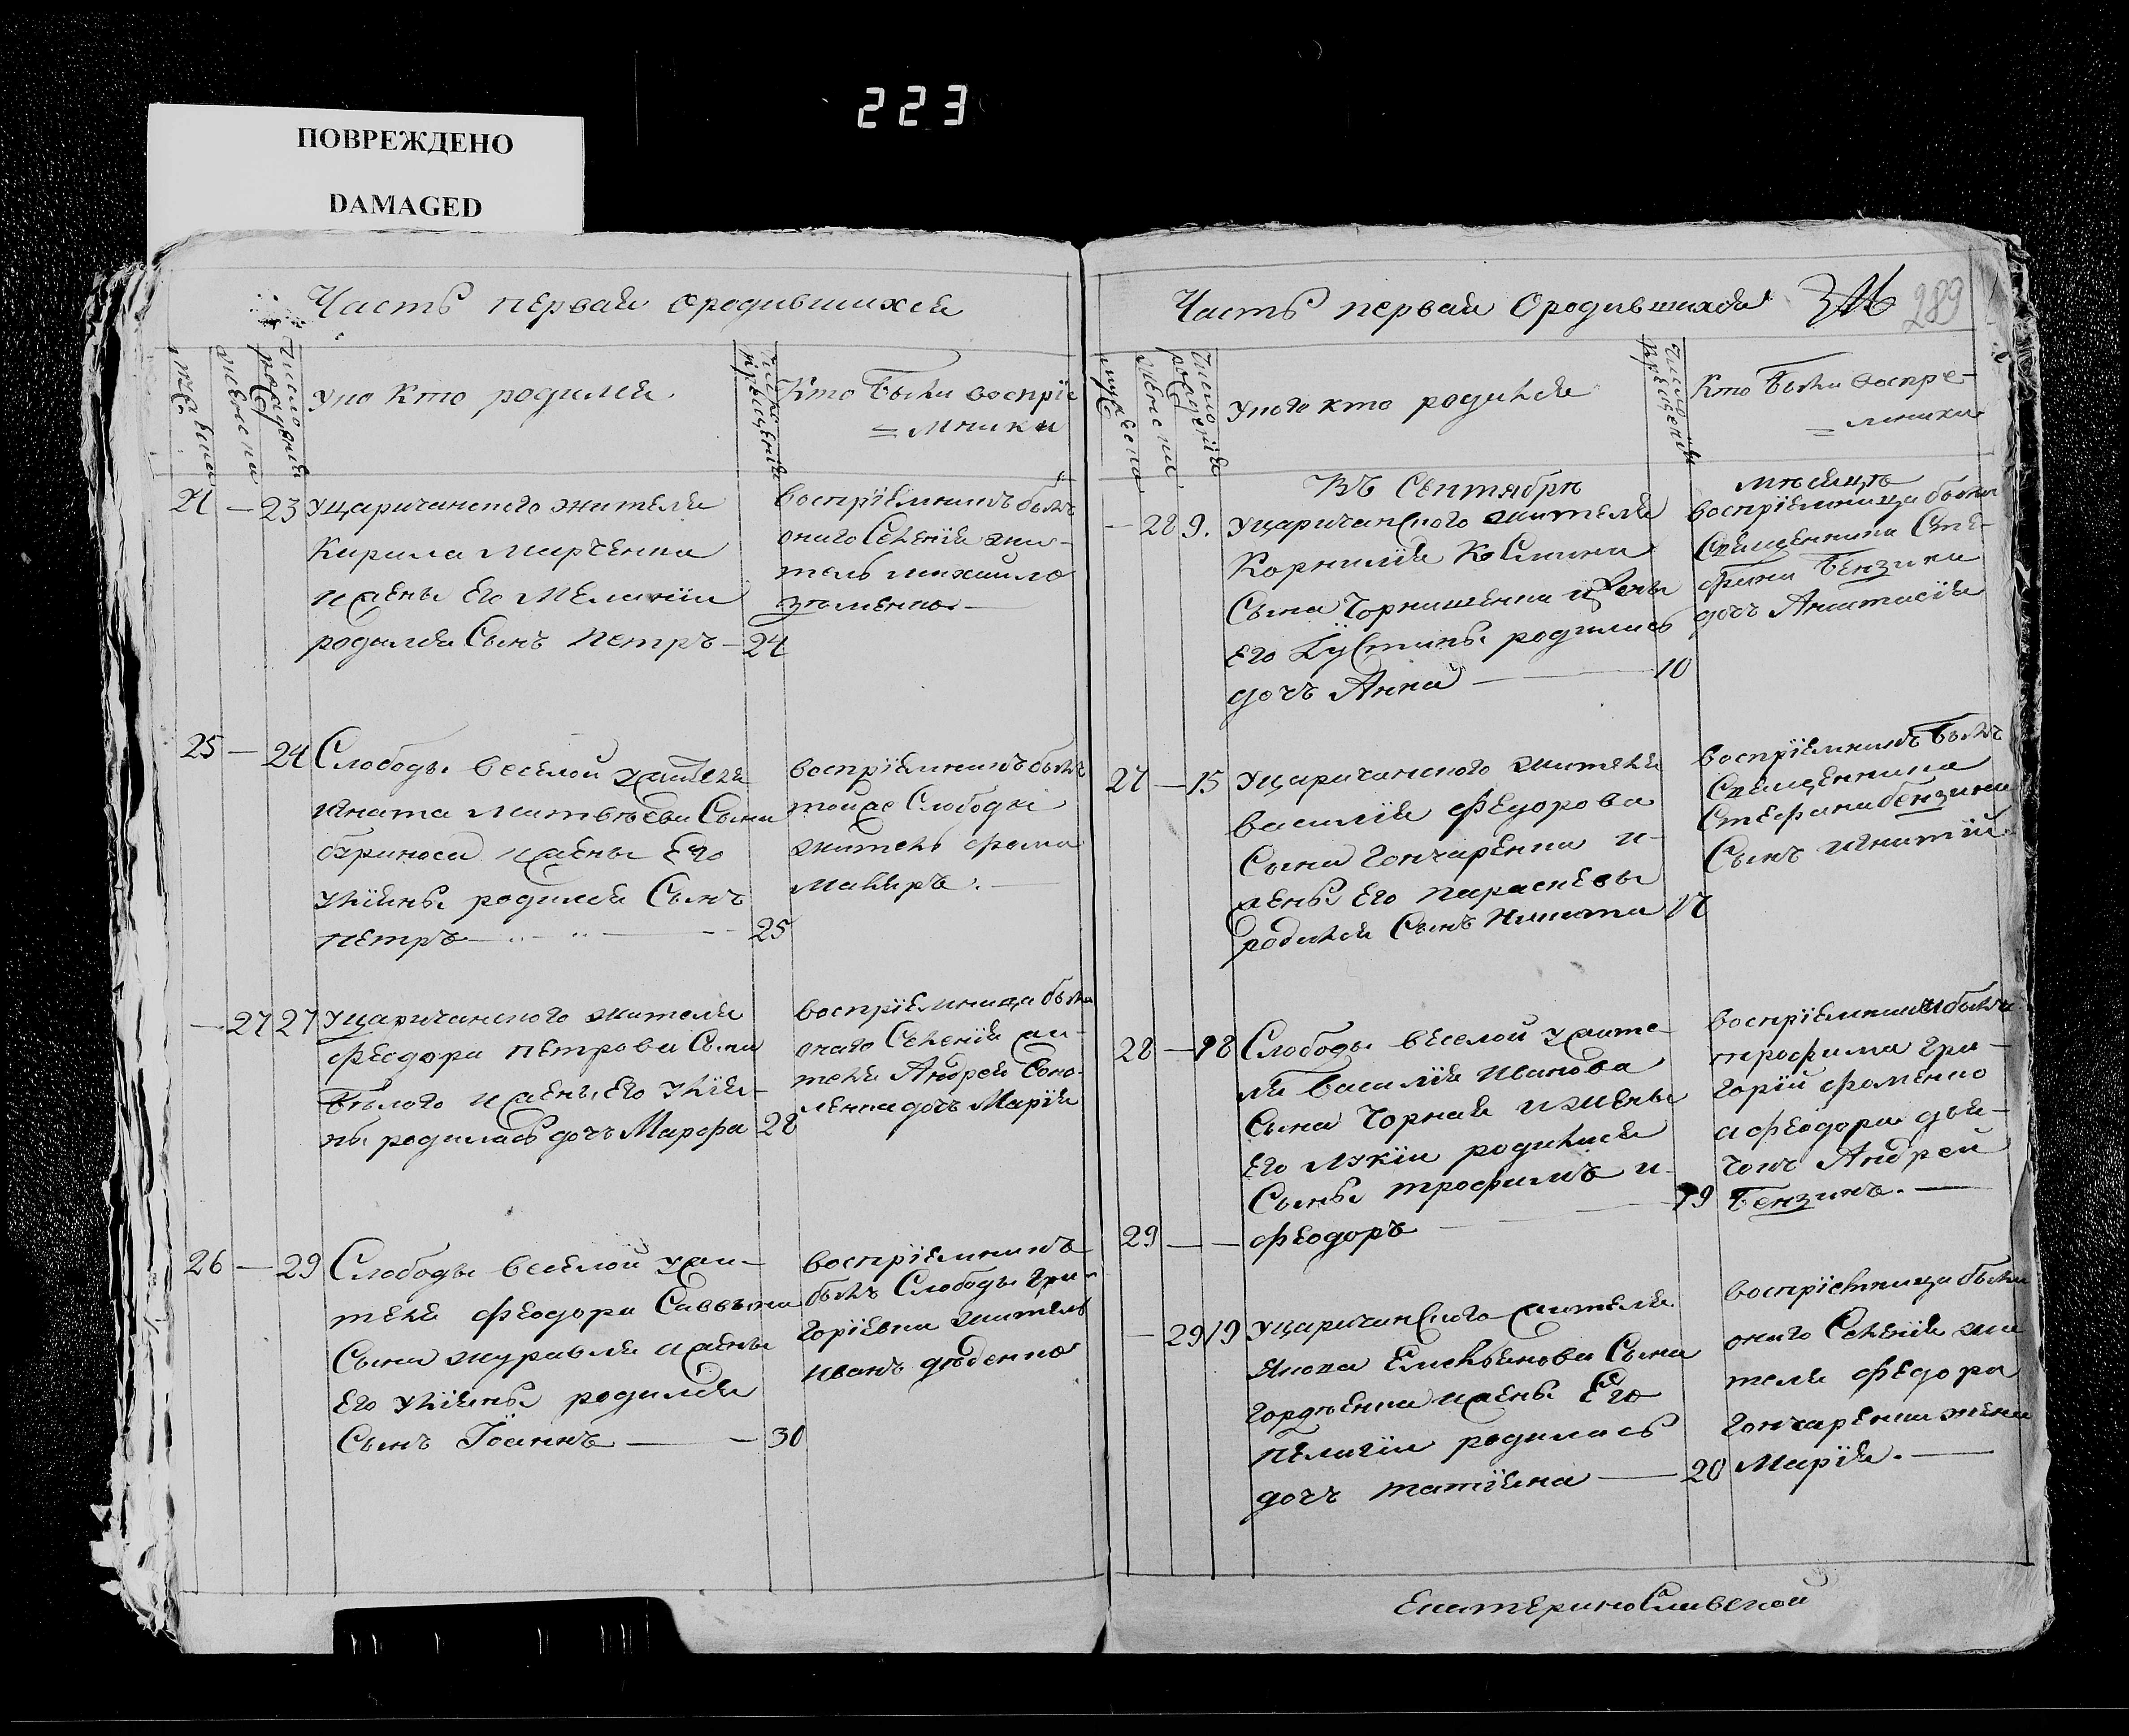 223
ПОВРЕЖДЕНО
DAMAGED
Часть первая ородившихся
мужеска
женска
Число рождения
У ко кто родился.
Число крещения
Кто были воспріе
= мники
21 — 23 Уцаричанского жителя
Кирила Марченка
и жены его Меланіи
родился Сынъ Петръ — 24
воспріемникъ былъ
оного Селенія жи-
тель михайло
25 — 24 Слободы веселой жителя
Игната Матвѣева Сына
и жены его
Уліяны родился Сынъ
петръ — 25
воспріемникъ былъ
тойже Слободы
житель фома
Махиръ. —
— 27 27 Уцаричанского жителя
феодора петрова Сына
Бѣлого и жены его Улія-
ны родилась дочь Марфа 28
воспріемница была
оного Селенія жи-
теля Андрея
дочь Марія
26 — 29 Слободы веселой У жи-
теля феодора Саввина
Сына журавля и жены
его Уліяны родился
Сынъ Іоаннъ — 30
воспріемникъ
былъ Слободы Гри-
горіевки житель
иванъ
Часть первая Ородившихся
289
мужеска
женска
Число рождения
У кого кто родился
Число крещения
Кто были воспре-
= мники
Въ Сентябрѣ мѣсяцѣ
— 28 9. Уцаричанского жителя
Корнилія Космина
Сына Чорнишенка и жены
его Іустины родилась
дочь Анна — 10
воспріемница была
Священника Сте-
фана Бензина
дочь Анастасія
27 — 15 Уцаричанского жителя
василія федорова
Сына гончаренка и-
жены его параскевы
родился Сынъ Никита 17
воспріемникъ былъ
Священника
Стефана бензина
Сынъ игнатій.
28 — 18 Слободы веселой У жите-
ля василія иванова
Сына Чорная и жены
его лукіи родились
Сыны трофимъ и- 19
29 — — феодоръ
воспріемники были
трофима гри-
горій фоменко
а феодора дья-
чокъ Андрей
Бензинъ. —
— 29 19 Уцаричанского жителя
якова Емельянова Сына
гордѣенка и жены его
пелагіи родилась
дочь татіяна — 20
воспріемница была
оного Селенія жи
теля федора
гончаренка жена
Марія. —
Екатеринославской